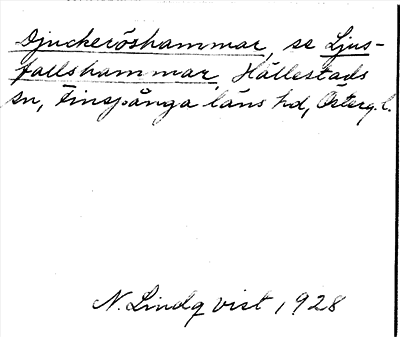 Djuckeröshammar, se Ljus-
fallshammar, Hällestads
sn, Finspånga läns hd, Österg. l.
N. Lindqvist 1928